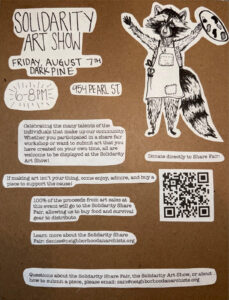 SOLIDARITY
ART SHOW
FRIDAY, AUGUST 7TH
DARK PINE
6-8PM
954 PEARL ST.
Celebrating the many talents of the
individuals that make up our community.
Whether you participated in a share fair
workshop or want to submit art that you
have created on your own time, all are
welcome to be displayed at the Solidarity
Art Show!
Donate directly to Share Fair:
If making art isn't your thing, come enjoy, admire, and buy a
piece to support the cause!
100% of the proceeds from art sales at
this event will go to the Solidarity Share
Fair, allowing us to buy food and survival
gear to distribute.
Learn more about the Solidarity Share
Fair:
Questions about the Solidarity Share Fair, the Solidarity Art Show, or about
how to submit a piece, please email: